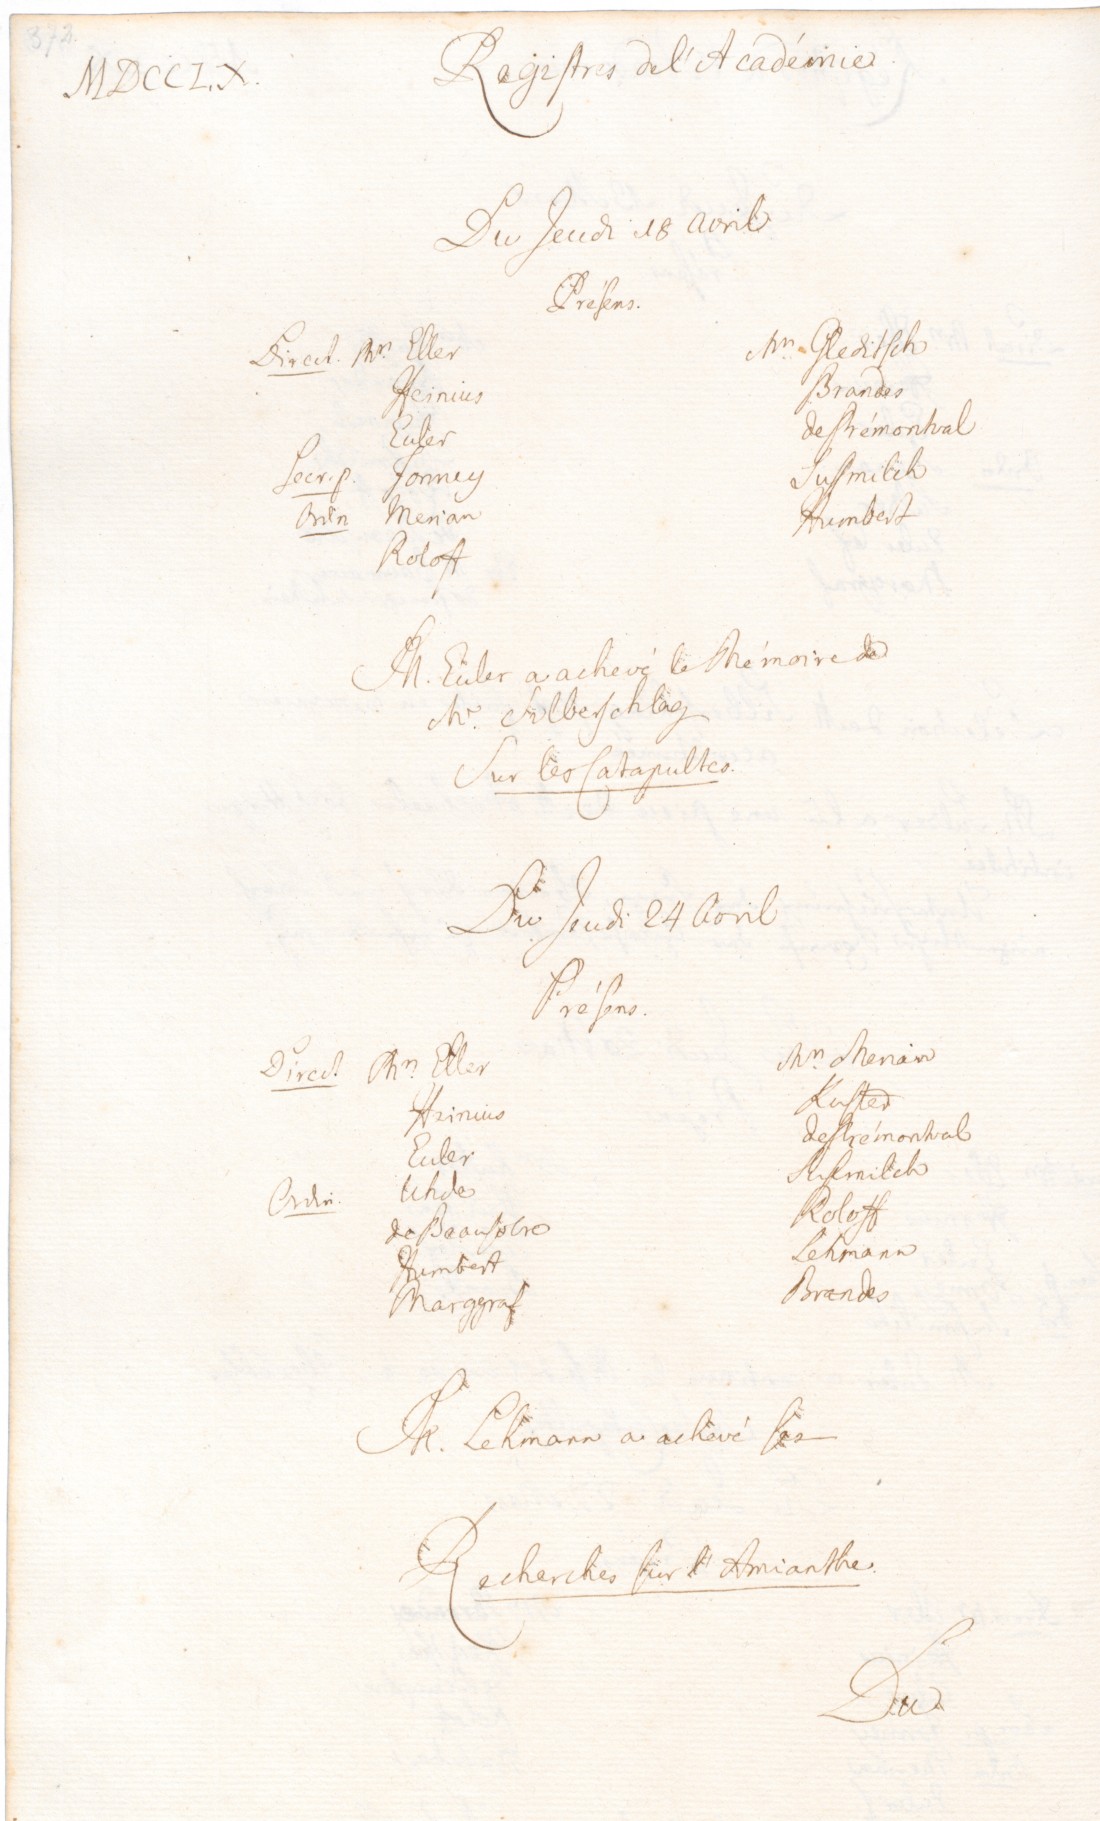 372.
MDCCLX.
Registres de l'Académie
Du Jeudi 18 Avril
Présens.
Direct. Mrs. Eller
Heinius
Euler
Secr. p. Formey
Ordin Merian
Roloff
Mrs. Gleditsch
Brandes
de Prémontval
Susmilch
Humbert
M. Euler a achevé le Mémoire de
Mr. Silberschlag
Sur les Catapultes.
Du Jeudi 24 Avril
Présens.
Direct. Mrs. Eller
Heinius
Euler
Ordin. Uhde
de Beausobre
Humbert
Marggraf
Mrs. Merian
Kuster
de Prémontval
Susmilch
Roloff
Lehmann
Brandes
M. Lehmann a achevé ses
Recherches sur l'Amianthe.
Du